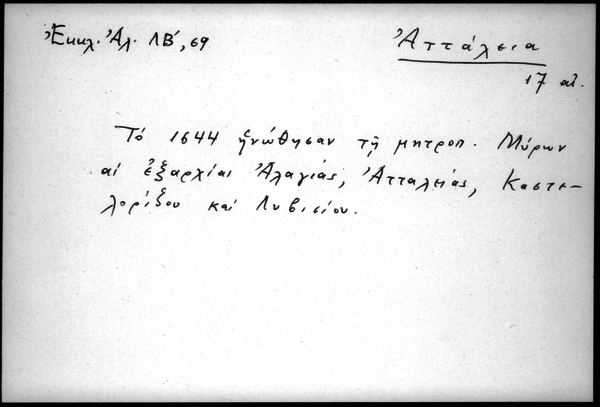 Ἐκκλ. Ἀλ. ΛΒ', 69
Ἀττάλεια
17 αἰ.
Τό 1644 ἡνώθησαν τῇ μητροπ. Μύρων
αἱ ἐξαρχίαι Ἀλαγιάς, Ἀτταλείας, Καστε-
λορίξου καί Λυβισίου.